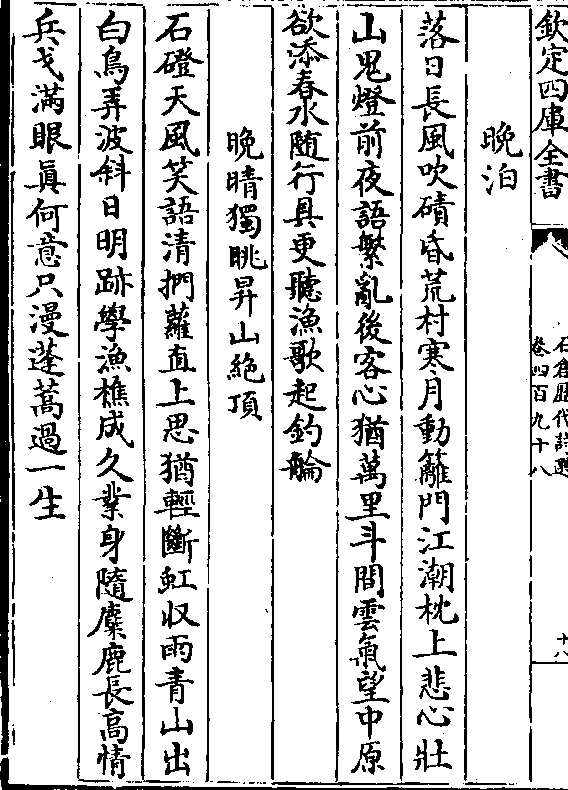 欽定四庫全書
卷四百九十八
十八
晚泊
落日長風吹磧昏荒村寒月動籬門江潮枕上悲心壯
山鬼燈前夜語繁亂後客心猶萬里斗間雲氣望中原
欲添春水随行具更聽漁歌起釣艣
晚晴獨眺昇山絶頂
石磴天風笑語清捫蘿直上思猶輕斷虹収雨青山出
白鳥弄波斜日明跡學漁樵成久業身隨麋鹿長高情
兵戈滿眼真何意只漫蓬蒿過一生